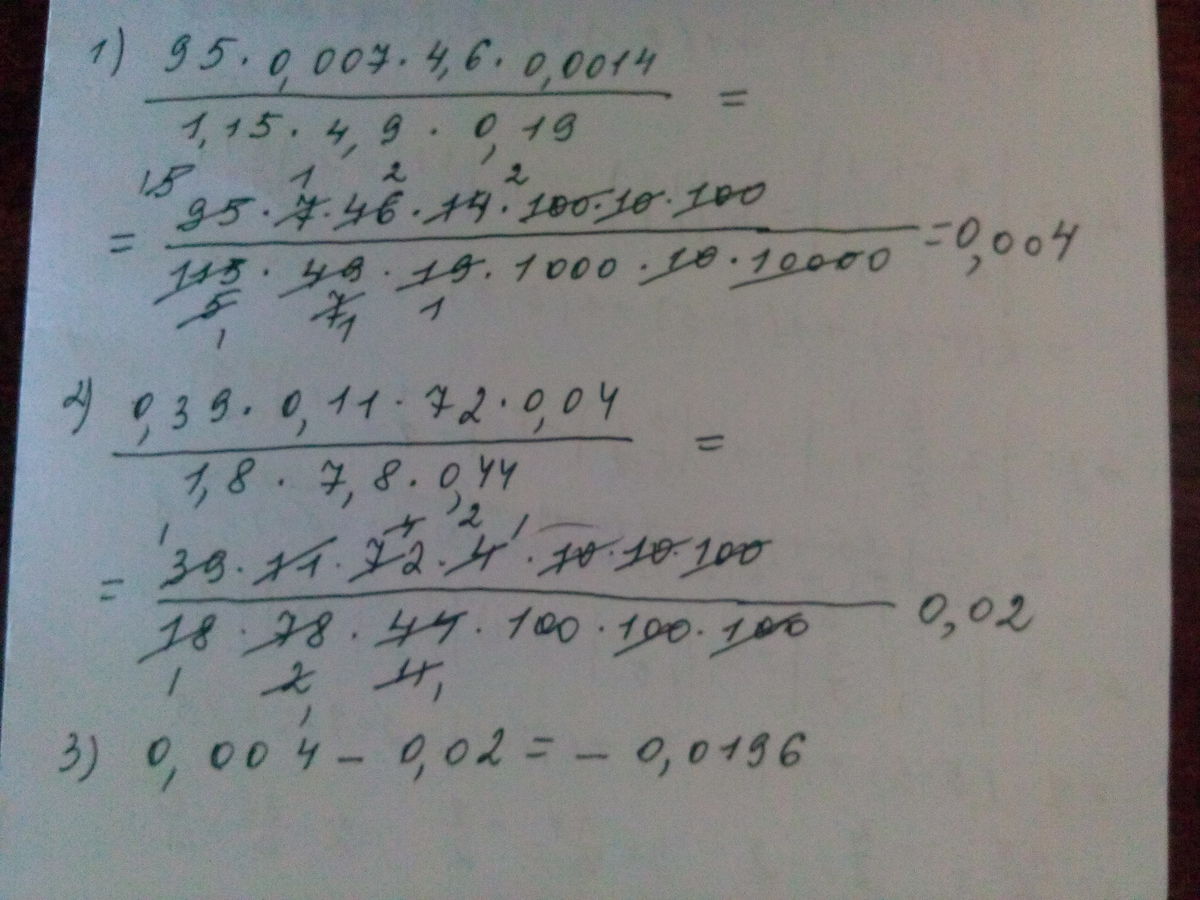 1) 95 · 0,007 · 4,6 · 0,0014
1,15 · 4,9 · 0,19 =
15 1 2 2
= 95 · 7 · 46 · 14 · 100 · 10 · 100
115 · 49 · 19 · 1000 · 10 · 10000 = 0,004
5 7 1
1 1
2) 0,39 · 0,11 · 72 · 0,04
1,8 · 7,8 · 0,44 =
1 4 2 1
= 39 · 11 · 72 · 4 · 10 · 10 · 100
18 · 78 · 44 · 100 · 100 · 100 0,02
1 2 4 1
1
3) 0,004 - 0,02 = - 0,0196